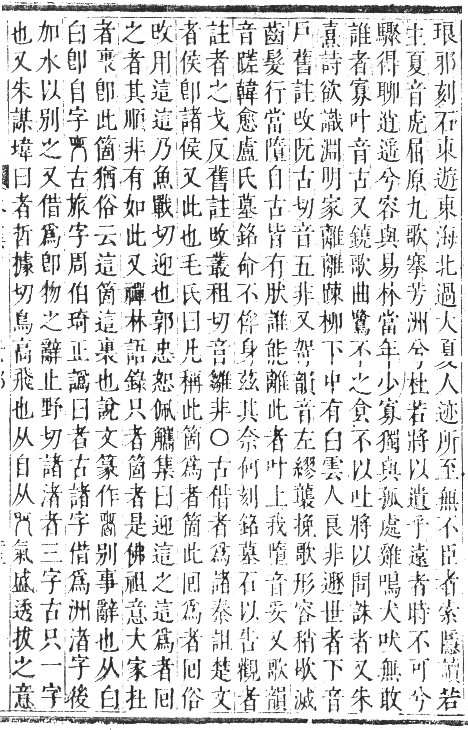 琅邪刻石東遊東海北過大夏人迹所至無不臣者索隱讀若
生夏音虎屈原九歌搴芳洲兮杜若將以遺乎遠者時不可兮
驟得聊逍遥兮容與易林當年少寡獨與孤處雞鳴犬吠無敢
誰者寡叶音古又鐃歌曲鷺不之食不以吐將以問誅者又朱
熹詩欲識淵明家離離疎柳下中有白雲人良非遯世者下音
戸舊註攺阮古切音五非又哿韻音左繆襲挽歌形容稍歇滅
齒髮行當墮自古皆有肰誰能離此者叶上我墮音妥又歌韻
音蹉韓愈盧氏墓銘命不侔身茲其奈何刻銘墓石以告觀者
註者之戈反舊註攺叢租切音雛非○古借者爲諸泰詛楚文
者侯卽諸侯又此也毛氏曰凡稱此箇爲者箇此回爲者回俗
攺用這這乃魚戰切迎也郭忠恕佩觿集曰迎這之這爲者回
之者其順非有如此又禪林語錄只者箇者是佛祖意大家杜
者裏卽此箇猶俗云這箇這裏也說文篆作𤾊别事辭也从白
白卽自字 古旅字周伯琦正譌曰者古諸字借爲洲渚字後
加水以别之又借爲卽物之辭止野切諸渚者三字古只一字
也又朱謀㙔曰者哲據切鳥高飛也从自从 氣盛透拔之意